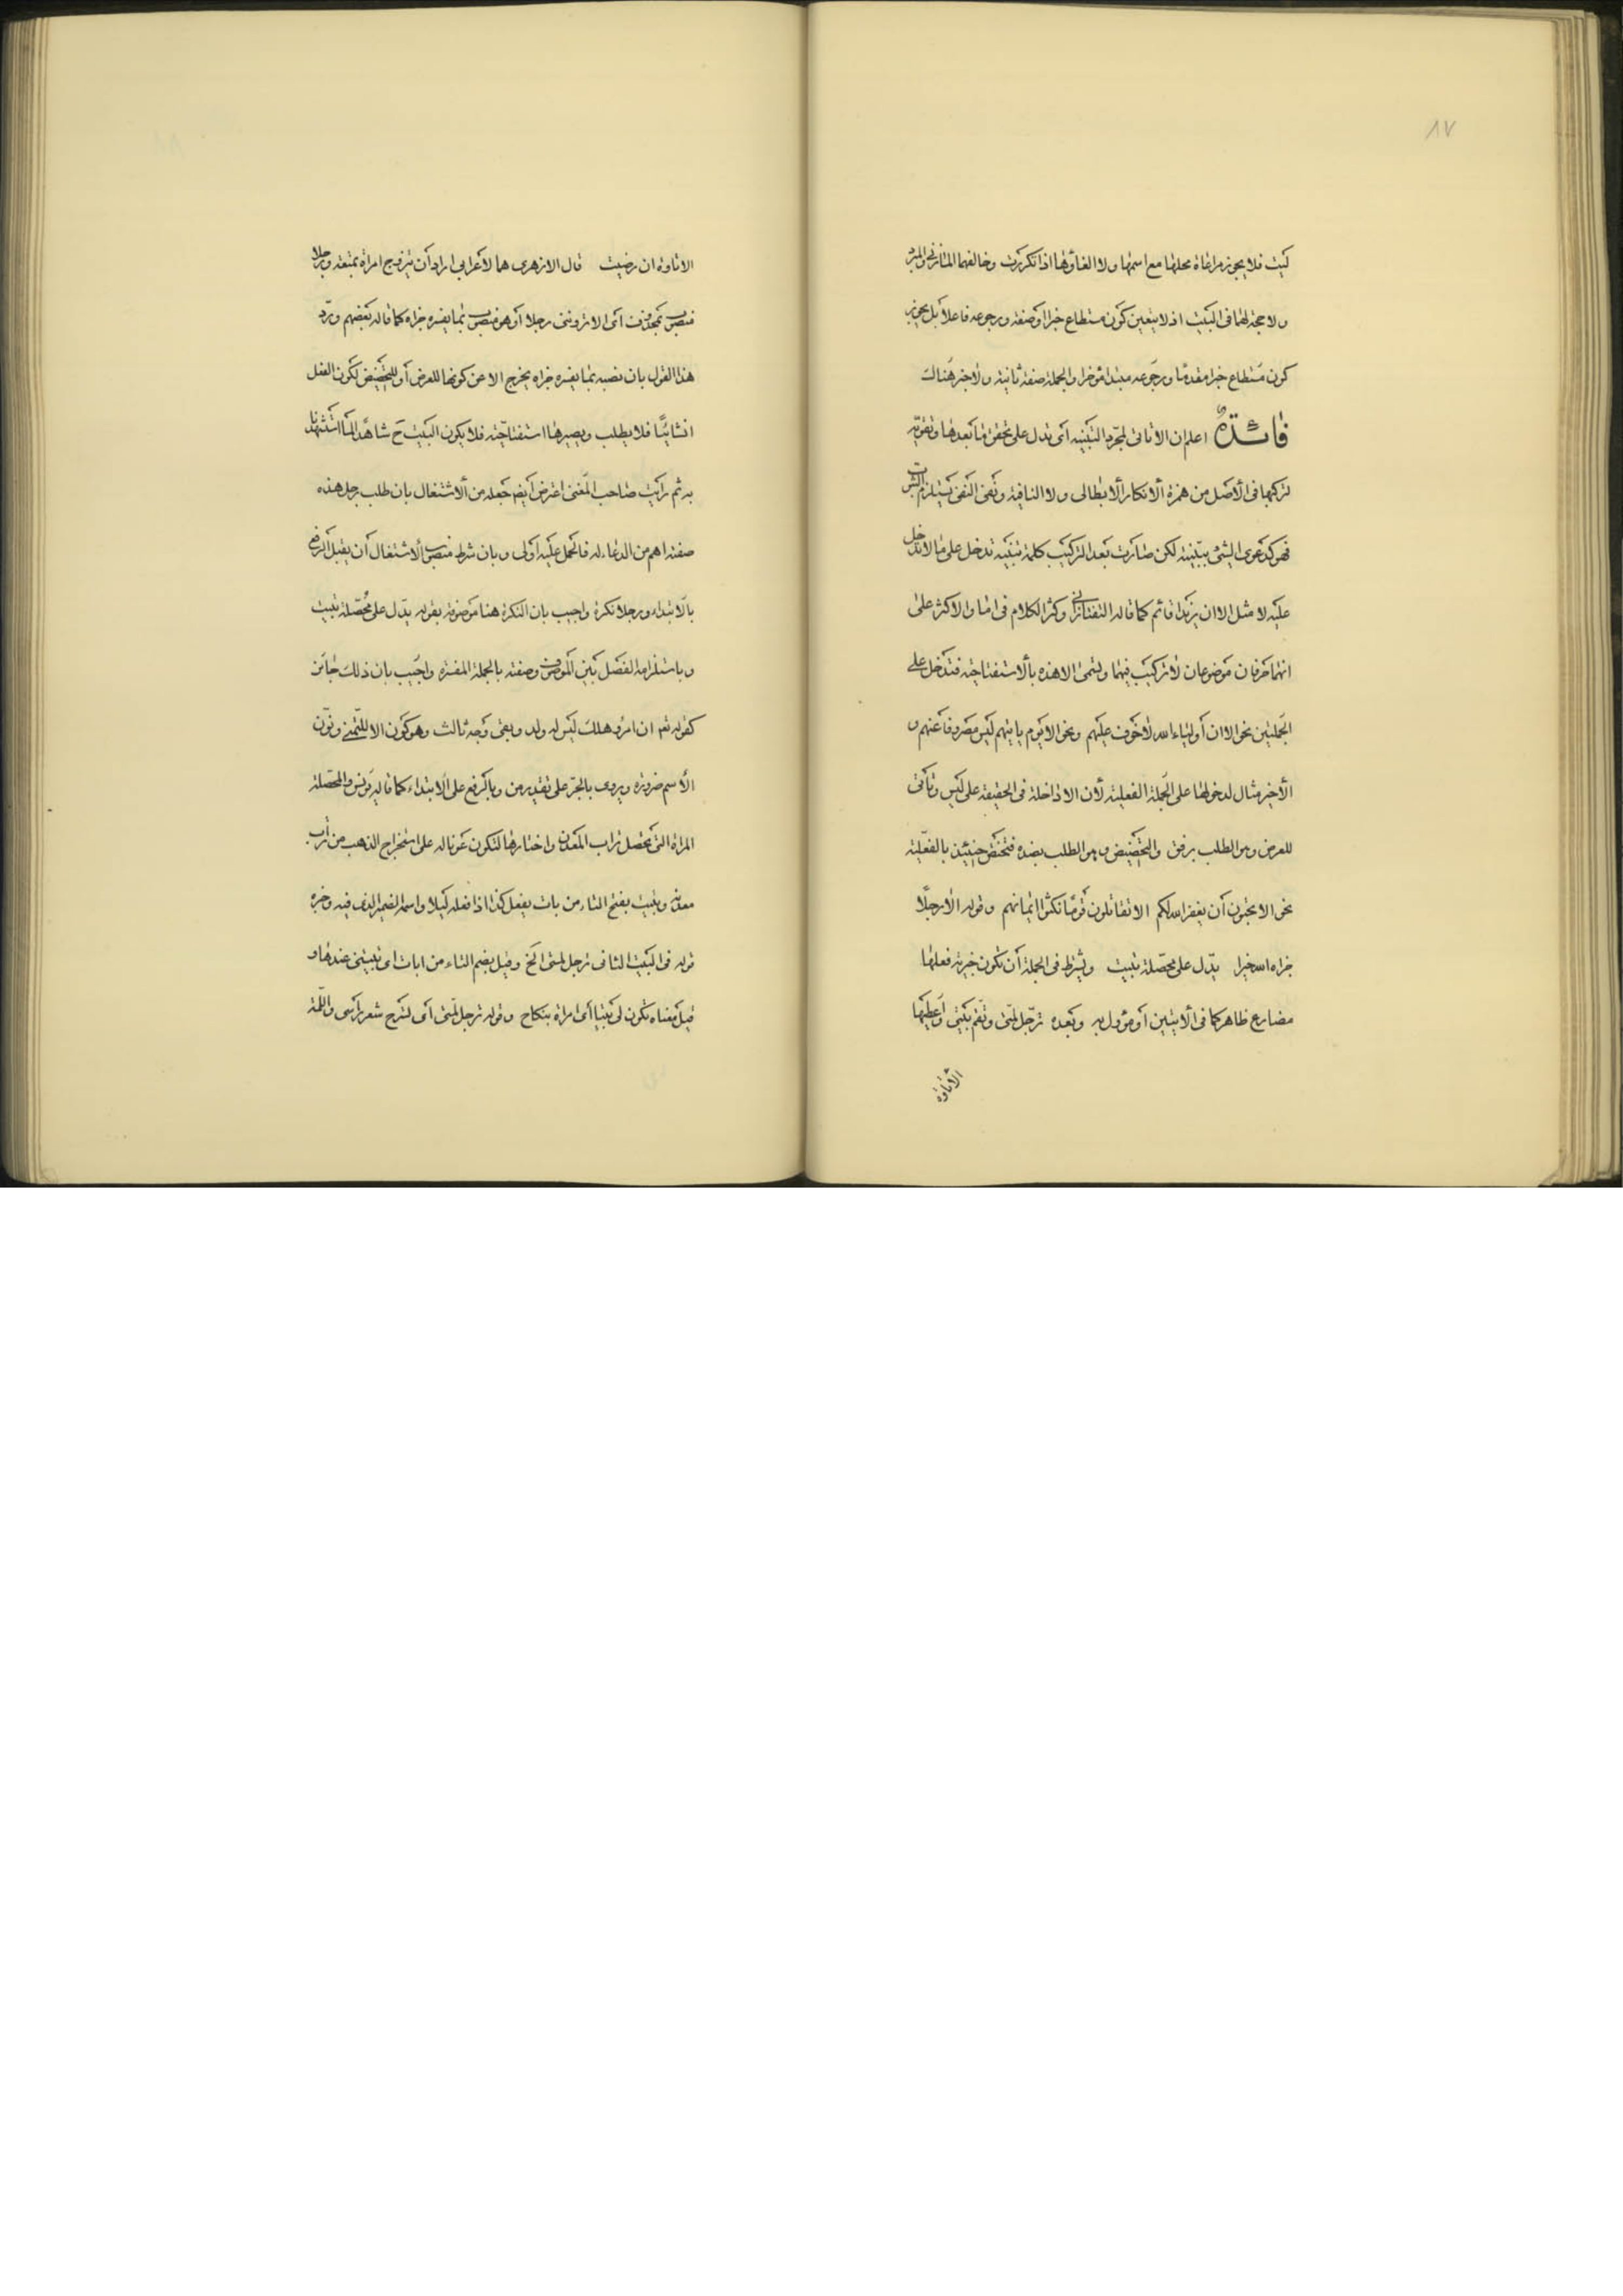 ٨٧
كليت فلا يجوز مراعاة محلها مع اسمها ولا الغاؤها اذا تكررت وخالفهما المازني والمبرد
ولا حجة لهما فى البيت اذ لا يتعين كون مستطاع خبرا او صفة ورجوعه فاعلا بل يجوز
كون مستطاع خبرا مقدما ورجوعه مبتدا مؤخرا والجملة صفة ثانية ولا خبر هناك
فائدة اعلم ان الا تاتى لمجرد التنبيه اى تدل على تحقق ما بعدها وتقويه
لتركبها فى الاصل من همزة الانكار الابطالى ولا النافية ونفى النفى يستلزم الثبوت
فهو كدعوى الشئ ببينة لكن صارت بعد التركيب كلمة تنبيه تدخل على ما لا تدخل
عليه لا مثل الا ان زيدا قائم كما قاله التفتازاني وكذا الكلام فى اما والاكثر على
انهما حرفان موضوعان لا تركيب فيهما وتسمى الا هذه بالاستفتاحية فتدخل على
الجملتين نحو الا ان أولياء الله لا خوف عليهم ونحو الا يوم ياتيهم ليس مصروفا عنهم و
الأخير مثال لدخولها على الجملة الفعلية لأن الا داخلة فى الحقيقة على ليس وتأتى
للعرض وهو الطلب برفق والتحضيض وهو الطلب بضده فتختص حينئذ بالفعلية
نحو الا تحبون أن يغفر الله لكم الا تقاتلون قوما نكثوا ايمانهم وقوله الا رجلا
جزاه الله خيرا يدل على محصلة تبيت ويشترط فى الجملة أن تكون خبرية فعلها
مضارع ظاهر كما فى الآيتين أو مؤول به وبعده ترجل لمتى وتقم بيتى واعطيها
الأتاوة
الاتاوة ان رضيت قال الازهرى هما لاعرابى اراد أن يتزوج امراة بمتعة ورجلا
منصوب بمحذوف اى الا تروننى رجلا أو هو منصوب بما يفسره جزاه كما قاله بعضهم ورد
هذا القول بان نصبه بما يفسره جزاه يخرج الا عن كونها للعرض أو للتحضيض لكون الفعل
انشائيا فلا يطلب ويصيرها استفتاحية فلا يكون البيت ح شاهدا لما استشهدنا
به ثم رأيت صاحب المغنى اعترض أيضا جعله من الاشتغال بان طلب رجل هذه
صفته اهم من الدعاء له فالحمل عليه أولى وبان شرط منصوب الاشتغال أن يقبل الرفع
بالابتداء ورجلا نكرة واجيب بان النكرة هنا موصوفة بقوله يدل على محصلة تبيت
وباستلزامه الفصل بين الموصوف وصفته بالجملة المفسرة واجيب بان ذلك جائز
كقوله تعـ ان امرؤ هلك ليس له ولد وبقى وجه ثالث وهو كون الا للتمنى ونون
الاسم ضرورة ويروى بالجر على تقدير من وبالرفع على الابتداء كما قاله يونس والمحصلة
المراة التى تحصل تراب المعدن واختارها لتكون عونا له على استخراج الذهب من تراب
معدنه وتبيت بفتح التاء من بات يفعل كذا اذا فعله ليلا واسمه الضمير الذى فيه وخبره
قوله فى البيت الثانى ترجل لمتى الخ وقيل بضم التاء من ابات اى تبيتنى عندها و
قيل معناه تكون لى بيتا أى امراة بنكاح وقوله ترجل لمتى اى تسرح شعر رأسى واللمة